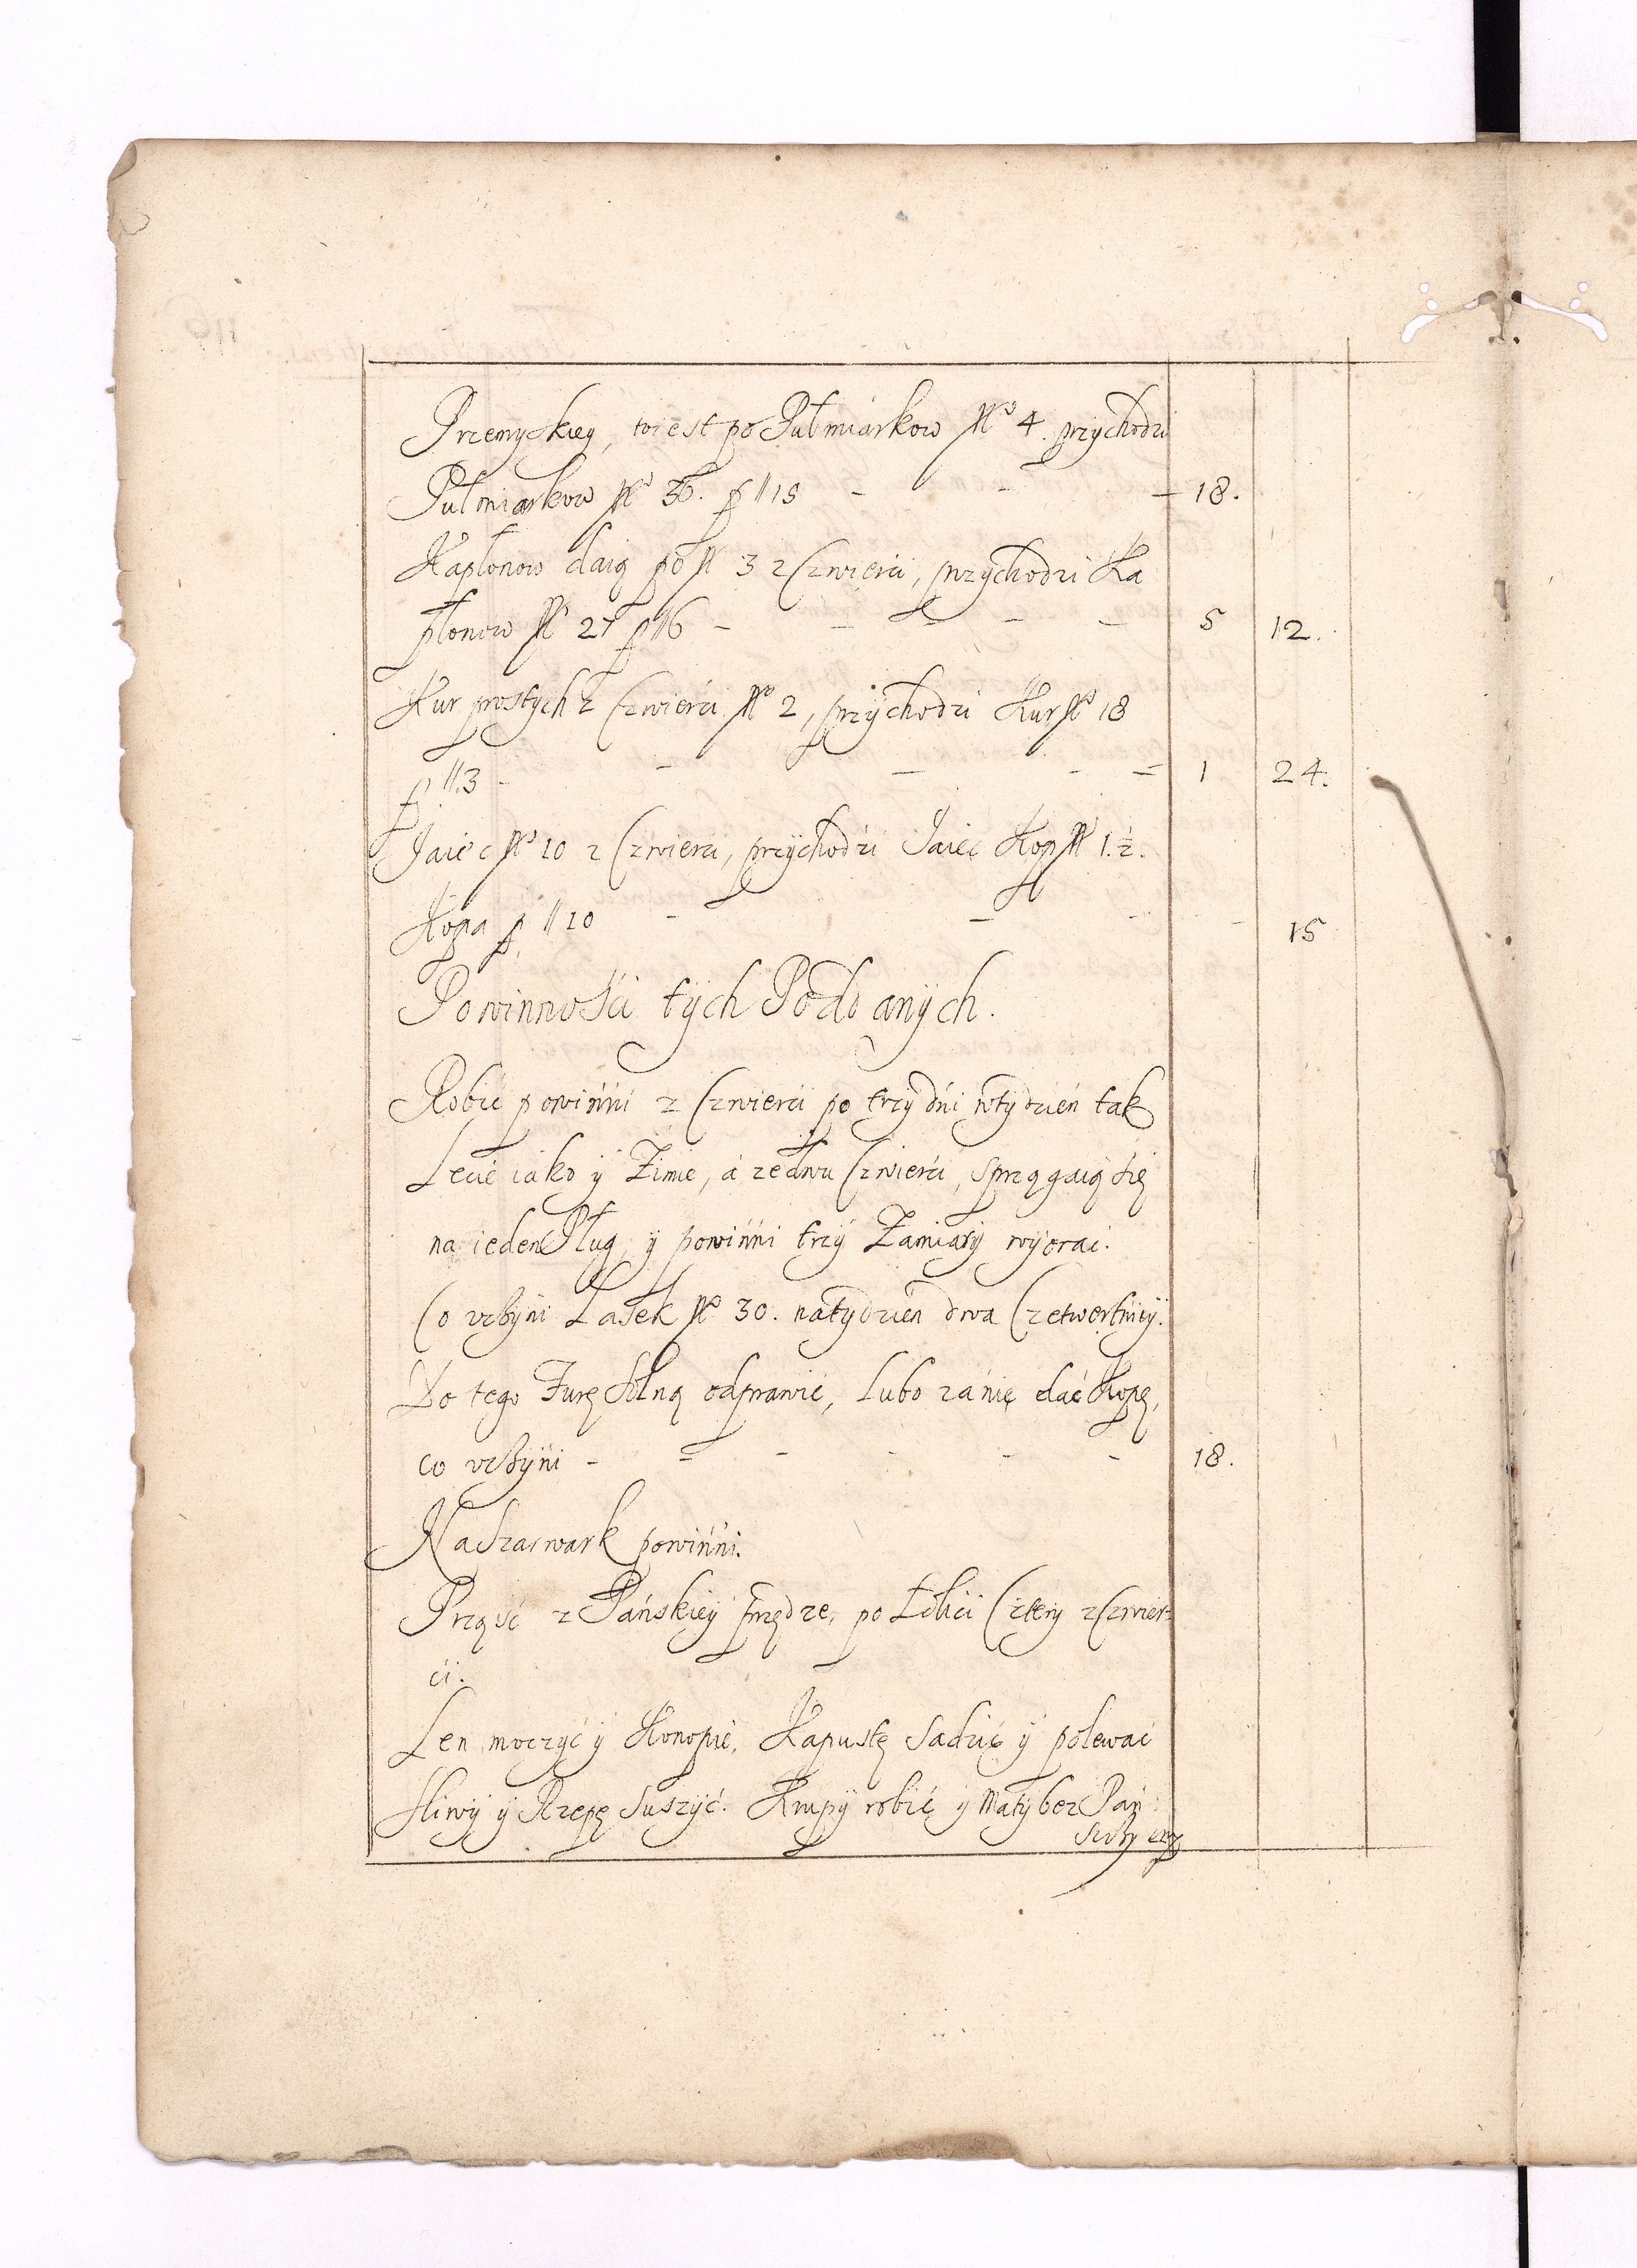 Przemyskiey, to iest po Pułmiarkow No 4. przychodzi
Pułmiarkow No 36. p // 15 - - - 18.
Kapłonow daią po No 3 z Czwierci, przychodzi Ka
płonow No 27 p // 6 - - - - - 5 12.
Kur prostych z Czwierci No 2, przychodzi Kur No 18
p // 3 - - - - - 1 24.
Jaiec No 10 z Czwierci, przychodzi Jaiec Kop No 1. ½.
Kopa p // 10 - - - - 15
Powinności tych Poddanych.
Robić powinni z Czwierci po trzy dni w tydzień tak
Lecie iako y Zimie, a ze dwu Czwierci, sprzągaią się
na ieden Pług, y powinni trzy Zamiary wyorać.
Co uczyni Lasek No 30. na tydzień dwa Czetwertnicy.
Do tego Furę Solną odprawić, lubo za nię dać Kopę,
co uczyni - - - - - - 18.
Na Szarwark powinni.
Prząść z Pańskiey przędze, po Łokci Cztery z Czwier=
ci.
Len moczyć y Konopie, Kapustę sadzić y polewać
Sliwy y Rzepę suszyć. Krupy robić y Mąty bez Pań: